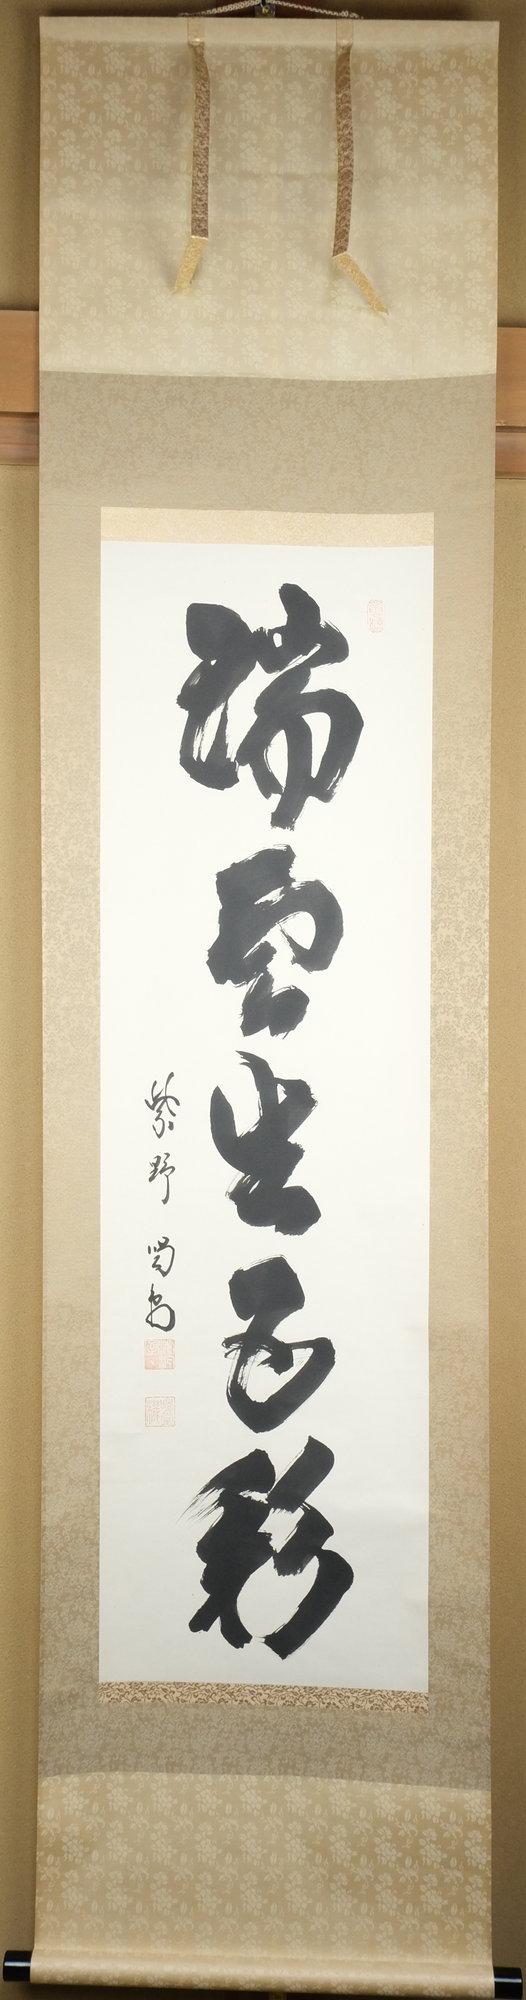 瑞雲生五彩
紫野